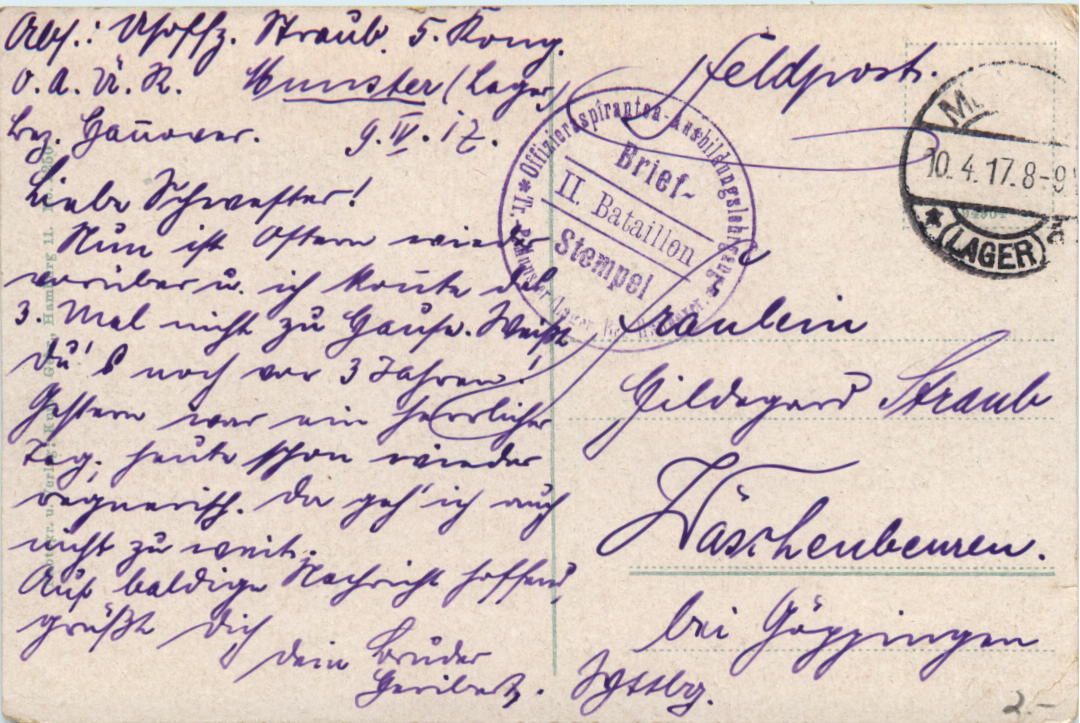 Abs.: Uhoffz. Straub. 5. Komp.
O. A. Ü. K. Munster (Lager)
Bez. Hannover. 9. IV. 17.
Liebe Schwester!
Nun ist Ostern wieder
vorüber u. ich konnte das
3. Mal nicht zu Hause. Weißt
Du's noch vor 3 Jahren!
Gestern war ein herrlicher
Tag, heute schon wieder
regnerisch. Da geh' ich auch
nicht zu weit.
Auf baldige Nachricht hoffend,
grüßt Dich
Dein Bruder
Heribert.
Feldpost.
Offizieraspiranten-Ausbildungslehrgang
Brief-
II. Bataillon
Stempel
M
10. 4. 17. 8-9
(LAGER)
Fräulein
Hildegard Straub
Wäschenbeuren.
bei Göppingen
Wttbg.
Hamburg 11.
2.-